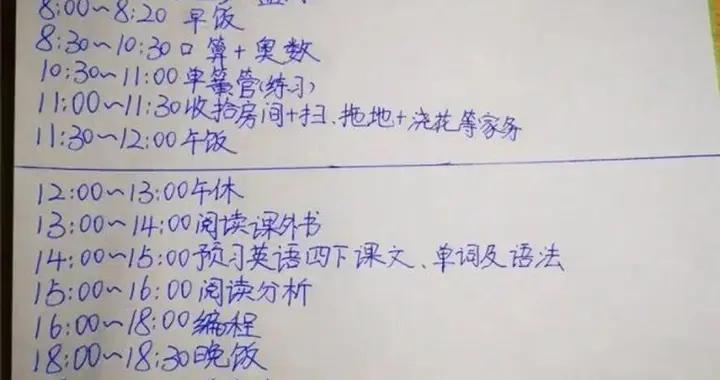 8:00~8:20 早饭
8:30~10:30 口算+奥数
10:30~11:00 单簧管(练习)
11:00~11:30 收拾房间+扫、拖地+浇花等家务
11:30~12:00 午饭
12:00~13:00 午休
13:00~14:00 阅读课外书
14:00~15:00 预习英语四下课文、单词及语法
15:00~16:00 阅读分析
16:00~18:00 编程
18:00~18:30 晚饭